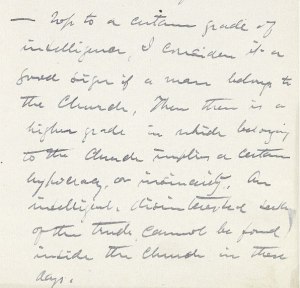 — Up to a certain grade of
intelligence, I consider it a
good sign if a man belongs to
the Church. Then there is a
higher grade in which belonging
to the Church implies a certain
hypocracy, or insincerity. An
intelligent, disinterested seeker
of the truth cannot be found
inside the Church in these
days.